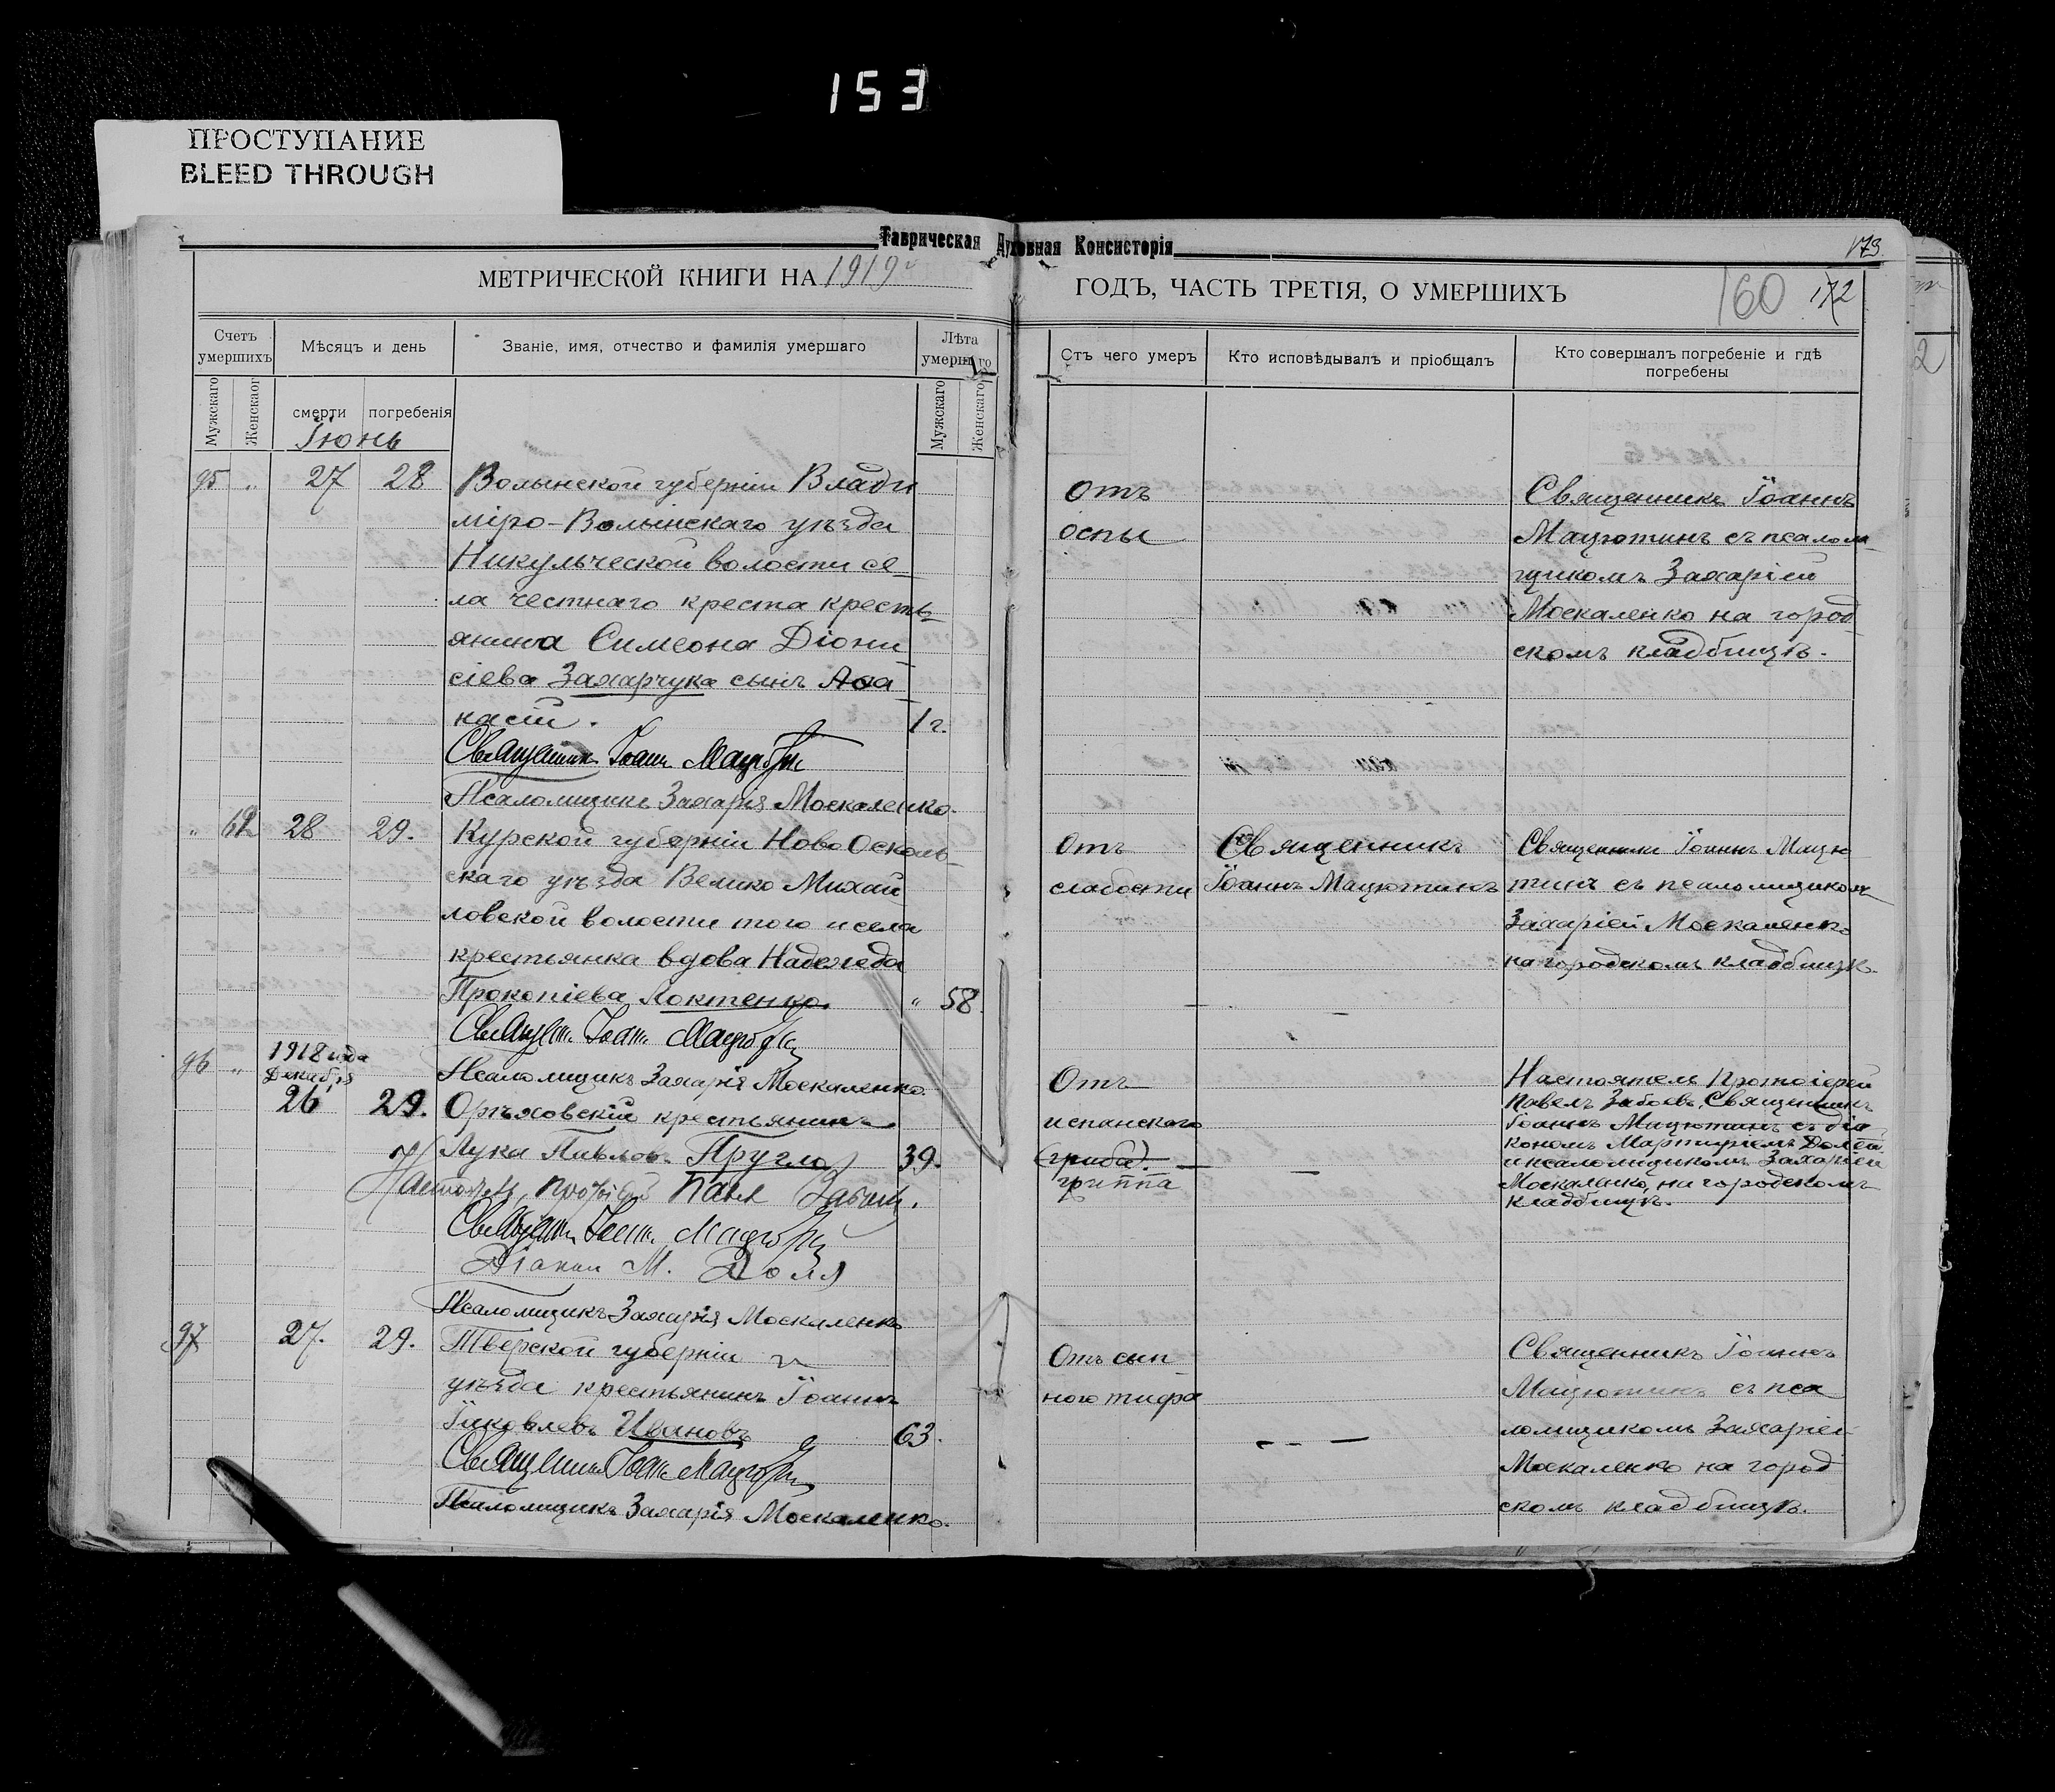 153
ПРОСТУПАНИЕ
BLEED THROUGH
Таврическая Духовная Консисторія
173.
МЕТРИЧЕСКОЙ КНИГИ НА 1919 г
ГОДЪ, ЧАСТЬ ТРЕТІЯ, О УМЕРШИХЪ
160 172
Счетъ умершихъ
Мѣсяцъ и день
Званіе, имя, отчество и фамилія умершаго
Лѣта умершаго
Отъ чего умеръ
Кто исповѣдывалъ и пріобщалъ
Кто совершалъ погребеніе и гдѣ погребены
Мужскаго
Женскаго
смерти
погребенія
Мужскаго
Женскаго
Іюнь
95 " 27 28 Волынской губерніи Влади
міро-Волынскаго уѣзда
Никульческой волости се-
ла Честнаго креста кресть-
янина Симеона Діони
сіева Захарчука сынъ Аѳа
насій. 1 г.
Священник Іоанн Мацютин
Псаломщикъ Захарія Москаленко.
Отъ
оспы
Священникъ Іоаннъ
Мацютинъ съ псалом
щикомъ Захаріей
Москаленко на город
скомъ кладбищѣ.
" 62 28 29. Курской губерніи Ново Осколь-
скаго уѣзда Велико Михай
ловской волости того и села
крестьянка вдова Надежда
Прокопіева Локтенко. " 58.
Священ. Іоан. Мацютин
Псаломщикъ Захарія Москаленко.
Отъ
слабости
Священникъ
Іоаннъ Мацютинъ
Священникъ Іоаннъ Мацю
тинъ съ псаломщикомъ
Захаріей Москаленко
на городскомъ кладбищѣ.
96 " 1918 года
Декабря
26 29. Орѣховскій крестьянинъ
Лука Павлов. Пругло 39.
Настоятель, протоіерей Павел
Священ. Іоан. Мацютин
Діакон М. Доля
Псаломщикъ Захарія Москаленко
Отъ
испанского
(гриба).
гриппа
Настоятель Протоіерей
Павелъ Священникъ
Іоаннъ Мацютинъ съ діа
кономъ Мартиріемъ Долей
и псаломщикомъ Захаріей
Москаленко, на городскомъ
кладбищѣ.
97 27. 29. Тверской губерніи
уѣзда крестьянинъ Іоаннъ
Іаковлевъ Ивановъ 63.
Священник Іоан. Мацютин
Псаломщикъ Захарія Москаленко.
Отъ сып
ного тифа
Священникъ Іоаннъ
Мацютинъ съ пса
ломщикомъ Захаріей
Москаленко на город
скомъ кладбищѣ.
2